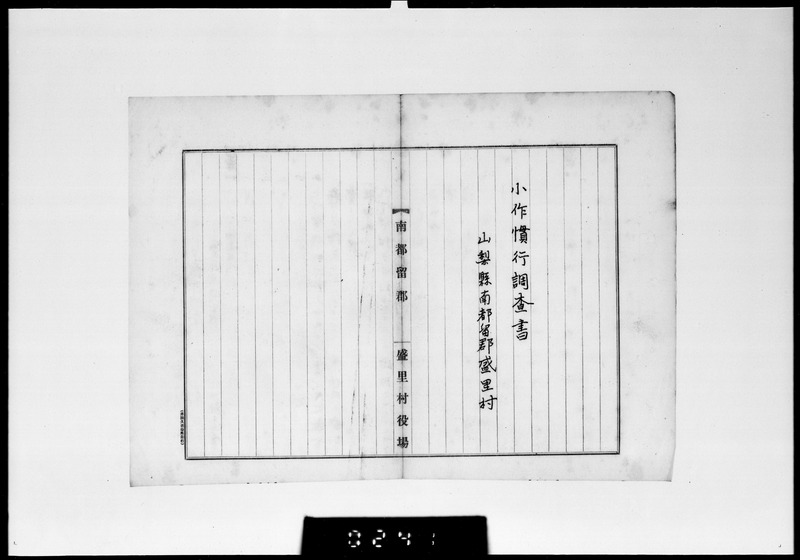 小作慣行調査書
山梨縣南都留郡盛里村
南都留郡
盛里村役場
0241